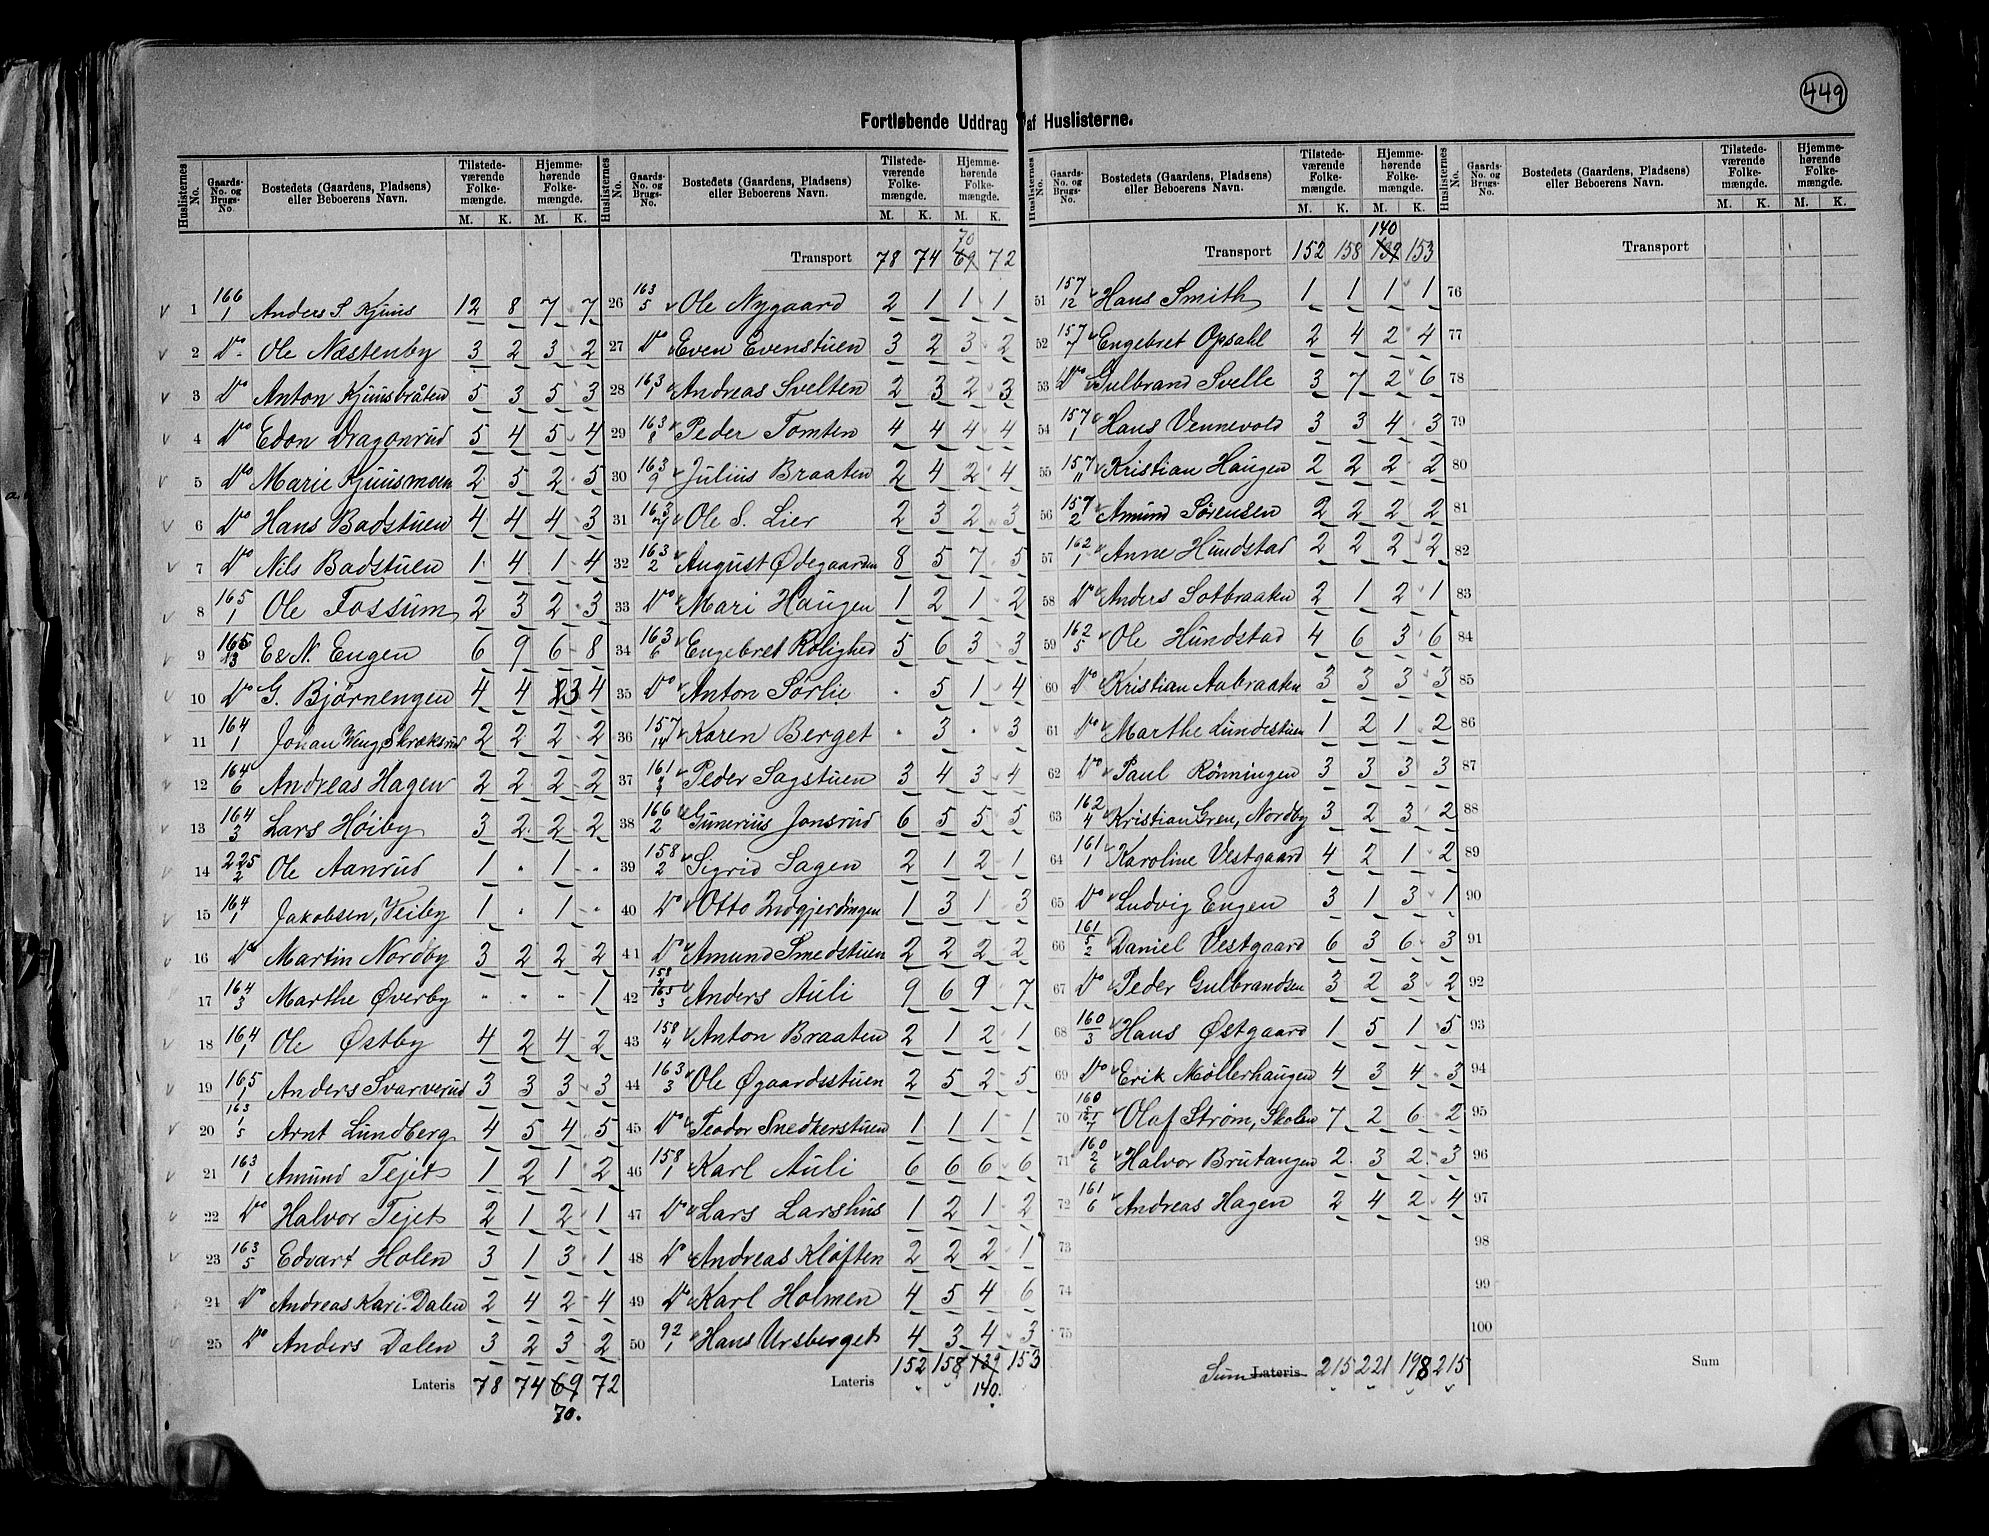 449
Fortløbende Uddrag af Huslisterne.
Huslisternes No. Gaards- No. og Brugs- No. Bostedets (Gaardens, Pladsens) eller Beboerens Navn. Tilstede- værende Folke- mængde. M. K. Hjemme- hørende Folke- mængde. M. K.
1 166/1 Anders S. Kjuus 12 8 7 7
2 Do Ole Næstenby 3 2 3 2
3 Do Anton Kjuusbråten 5 3 5 3
4 Do Edon Dragonrud 5 4 5 4
5 Do Marie Kjuusmoen 2 5 2 5
6 Do Hans Badstuen 4 4 4 3
7 Do Nils Badstuen 1 4 1 4
8 165/1 Ole Fossum 2 3 2 3
9 165 E & N. Engen 6 9 6 8
10 Do G. Bjørnengen 4 4 3 4
11 164/1 Johan Weng, Skræksrud 2 2 2 2
12 164/6 Andreas Hagen 2 2 2 2
13 164/3 Lars Høiby 3 2 2 2
14 225/2 Ole Aanrud 1 . 1 .
15 164/1 Jakobsen, Veiby 1 . 1 .
16 Do Martin Nordby 3 2 2 2
17 164/3 Marthe Øverby . . . 1
18 164/1 Ole Østby 4 2 4 2
19 165/1 Anders Svarverud 3 3 3 3
20 163 1/5 Arnt Lundberg 4 5 4 5
21 163/1 Amund Tejet 1 2 1 2
22 Do Halvor Tejet 2 1 2 1
23 163/5 Edvart Holen 3 1 3 1
24 Do Andreas Kari-Dalen 2 4 2 4
25 Do Anders Dalen 3 2 3 2
Lateris 78 74 69 72
70.
Huslisternes No. Gaards- No. og Brugs- No. Bostedets (Gaardens, Pladsens) eller Beboerens Navn. Tilstede- værende Folke- mængde. M. K. Hjemme- hørende Folke- mængde. M. K.
70
Transport 78 74 69 72
26 163/5 Ole Nygaard 2 1 1 1
27 Do Even Evenstuen 3 2 3 2
28 163/1 Andreas Svelten 2 3 2 3
29 163/8 Peder Tomten 4 4 4 4
30 163/9 Julius Braaten 2 4 2 4
31 163 Ole S. Lier 2 3 2 3
32 163/2 August Ødegaarden 8 5 7 5
33 Do Mari Haugen 1 2 1 2
34 163/6 Engebret Rolighed 5 6 3 3
35 Do Anton Sørlie . 5 1 4
36 157/14 Karen Berget . 3 . 3
37 161 Peder Sagstuen 3 4 3 4
38 166/2 Gunerius Jonsrud 6 5 5 5
39 158/2 Sigrid Sagen 2 1 2 1
40 Do Otto Indgjerdingen 1 3 1 3
41 Do Amund Smedstuen 2 2 2 2
42 158 165/3 Anders Auli 9 6 9 7
43 158/4 Anton Braaten 2 1 2 1
44 163/3 Ole Øgaardsstuen 2 5 2 5
45 Do Teodor Snedkerstuen 1 1 1 1
46 158/1 Karl Auli 6 6 6 6
47 Do Lars Larshus 1 2 1 2
48 Do Andreas Kløften 2 2 2 1
49 Do Karl Holmen 4 5 4 6
50 92/1 Hans Ursberget 4 3 4 3
Lateris 152 158 139 153
140.
Huslisternes No. Gaards- No. og Brugs- No. Bostedets (Gaardens, Pladsens) eller Beboerens Navn. Tilstede- værende Folke- mængde. M. K. Hjemme- hørende Folke- mængde. M. K.
140
Transport 152 158 139 153
51 157/12 Hans Smith 1 1 1 1
52 157/7 Engebret Opsahl 2 4 2 4
53 Do Gulbrand Svelle 3 7 2 6
54 157/1 Hans Vennevold 3 3 4 3
55 157/11 Kristian Haugen 2 2 2 2
56 157/2 Amund Sørensen 2 2 2 2
57 162/1 Anne Hundstad 2 2 2 2
58 Do Anders Sotbraaten 2 1 2 1
59 162/5 Ole Hundstad 4 6 3 6
60 Do Kristian Aabraaten 3 3 3 3
61 Do Marthe Lundestuen 1 2 1 2
62 Do Paul Rønningen 3 3 3 3
63 162/4 Kristian Gren, Nordby 3 2 3 2
64 161/1 Karoline Vestgaard 4 2 1 2
65 Do Ludvig Engen 3 1 3 1
66 161 5/2 Daniel Vestgaard 6 3 6 3
67 Do Peder Gulbrandsen 3 2 3 2
68 160/3 Hans Østgaard 1 5 1 5
69 Do Erik Møllerhaugen 4 3 4 3
70 160/5 161/7 Olaf Strøm, Skolen 7 2 6 2
71 160 2/6 Halvor Brutangen 2 3 2 3
72 161/6 Andreas Hagen 2 4 2 4
73
74
75
Sum Lateris 215 221 198 215
Huslisternes No. Gaards- No. og Brugs- No. Bostedets (Gaardens, Pladsens) eller Beboerens Navn. Tilstede- værende Folke- mængde. M. K. Hjemme- hørende Folke- mængde. M. K.
Transport
76
77
78
79
80
81
82
83
84
85
86
87
88
89
90
91
92
93
94
95
96
97
98
99
100
Sum